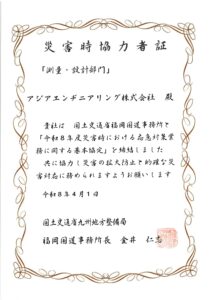 災害時協力者証
「測量・設計部門」
アジアエンヂニアリング株式会社 殿
貴社は 国土交通省福岡国道事務所と
「令和8年度災害時における応急対策業
務に関する基本協定」を締結しました
共に協力し災害の拡大防止と的確な災
害対応に務められますようお願いします
令和8年4月1日
国土交通省九州地方整備局
福岡国道事務所長 金井 仁志